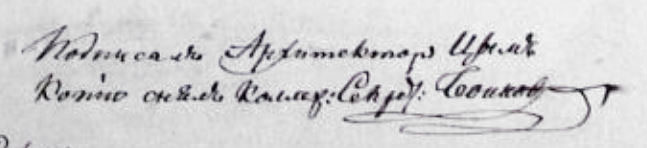 Подписалъ Архитекторъ Цимъ
Копию снялъ Коллеж: Секрет: